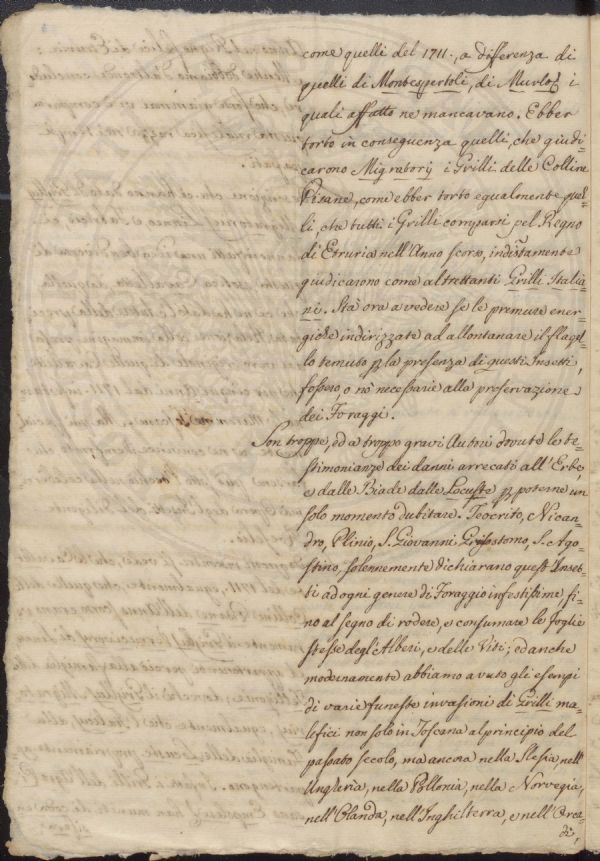 come quelli del 1711., a differenza di
quelli di Montespertoli, di Murlo, i
quali affatto ne mancavano. Ebber
torto in conseguenza quelli, che giudi=
carono Migratorj i Grilli delle Colline
Pisane, com'ebber torto egualmente quel=
li, che tutti i Grilli comparsi pel Regno
di Etruria nell'Anno scorso, indistintamente
giudicarono come altrettanti Grilli Italia=
ni. Stà ora a vedere se le premure ener=
giche indirizzate ad allontanare il flagel=
lo temuto p la presenza di questi Insetti,
fossero, o nò necessarie alla preservazione
dei Foraggi.
Son troppe, ed a troppo gravi Autori dovute le te=
stimonianze dei danni arrecati all'Erbe,
e dalle Biade dalle Locuste p poterne un
solo momento dubitare. Teocrito, Nican=
dro, Plinio, S. Giovanni Grisostomo, S. Ago=
stino, solennemente dichiarano quest'Inset=
ti ad ogni genere di Foraggio infestissime, fi=
no al segno di rodere, e consumare le foglie
stesse degl'Alberi, e delle Viti; ed anche
modernamente abbiamo avuto gli esempi
di varie funeste invasioni di Grilli ma=
lefici non solo in Toscana al principio del
passato secolo, ma ancora nella Slesia, nell'
Ungheria, nella Pollonia, nella Norvegia,
nell'Olanda, nell'Inghilterra, e nell'Orca=
di,